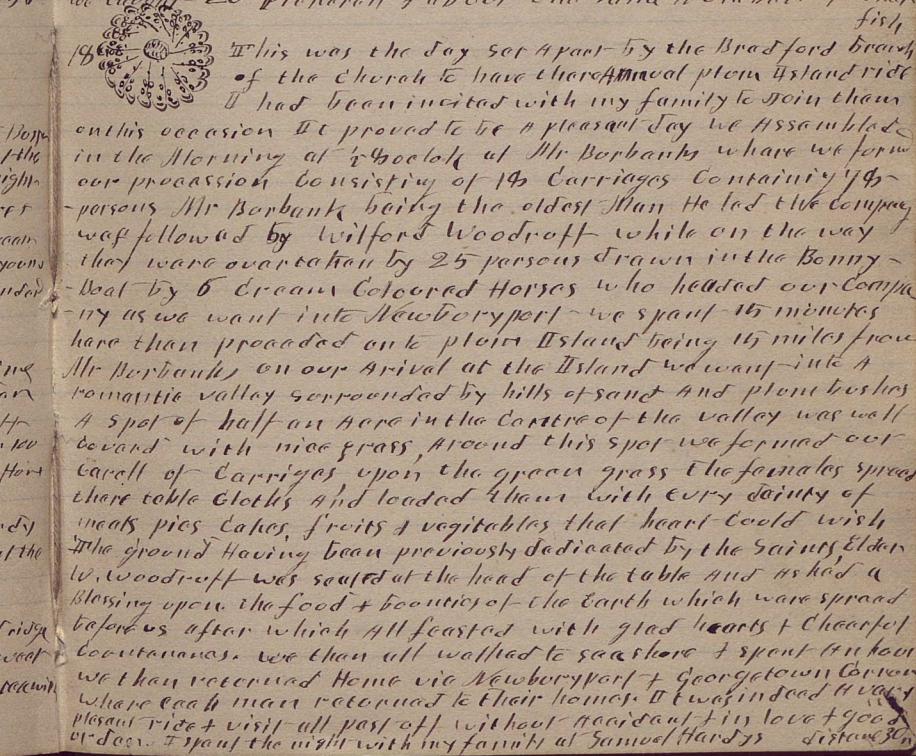 fish
18 This was the day set Apart by the Bradford branch
of the Church to have there Annual plum Island ride
I had been invited with my family to Join them
on this occasion It proved to be A pleasant day we Assembled
in the Morning at oclok at Mr Burbanks where we form
our procession Consisting of 18 Carriages Containing 78
persons Mr Burbank being the oldest Man He led the company
was followed by Wilford Woodruff while on the way
they were overtaken by 25 persons drawn in the Bonny-
Boat by 6 Cream Coloured Horses who headed our Compa
-ny as we went into Newburyport we spent 15 minutes
here than proceded on to plum Island being 15 miles from
Mr Burbanks on our Arival at the Island we went into A
romantic valley surrounded by hills of sand And plum bushes
A spot of half an Acre in the Centre of the valley was well
Coverd with nice grass, Around this spot we formed our
Carell of Carriges, upon the green grass the females spread
there table Cloths And loaded them with evry dainty of
meats pies Cakes, fruits & vegitables that heart Could wish
The ground Having been previously dedicated by the Saints, Elder
W. Woodruff was seated at the head of the table And Asked a
Blessing upon the food & bounties of the Earth which were spread
before us after which All feasted with glad hearts & Cheerful
Countenances. we than all walked to sea shore & spent An hour
we than returned Home via Newburyport & Georgetown Corner
where each man returned to their homes It was indeed A vary
pleasant ride & visit all past off without Accident & in love & good
order. I spent the night with my family at Samuel Hardys distance 30 m